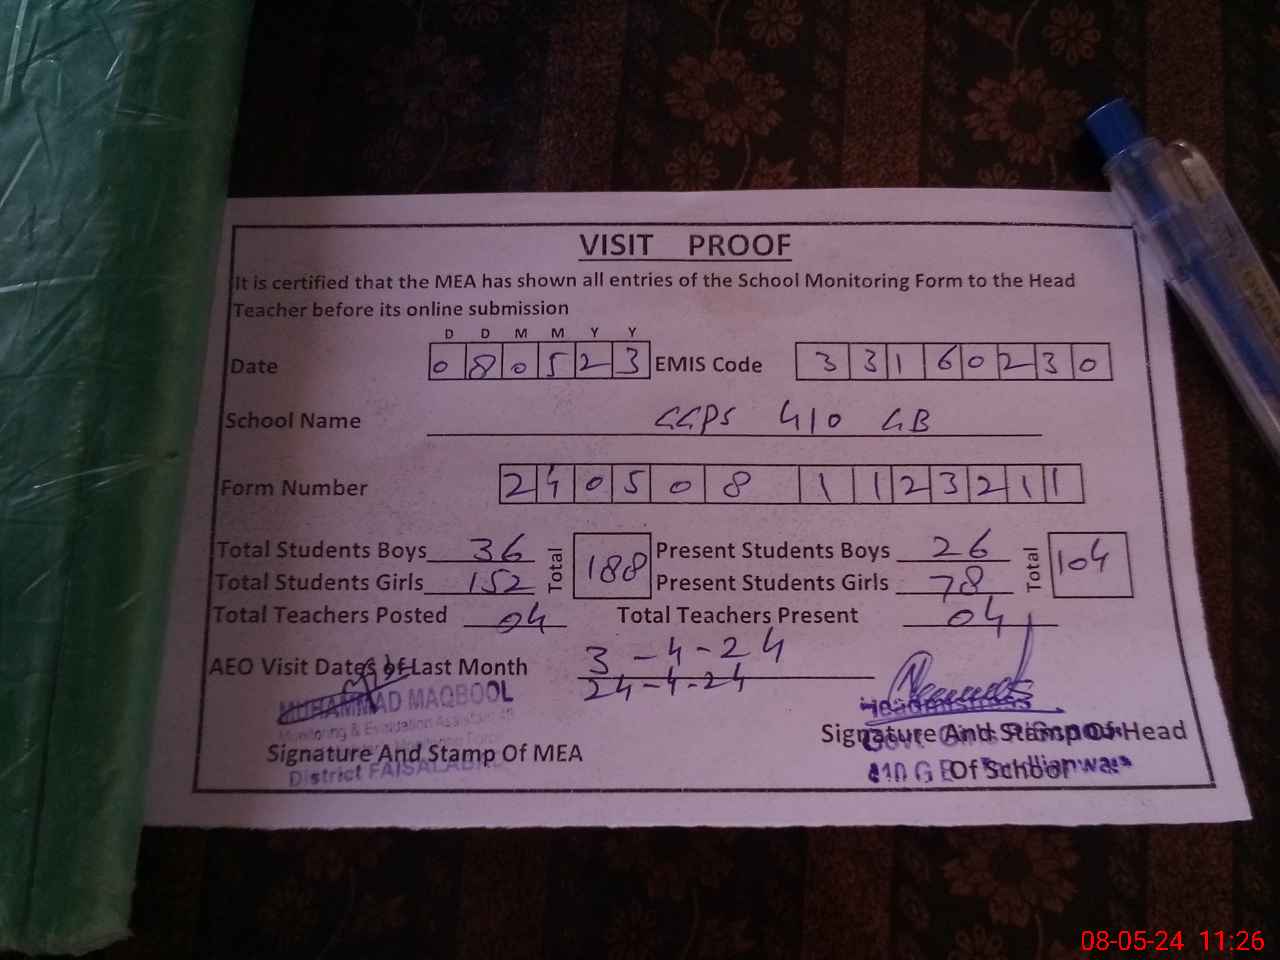 VISIT PROOF
It is certified that the MEA has shown all entries of the School Monitoring Form to the Head
Teacher before its online submission
D D M M Y Y
Date 0 8 0 5 2 3 EMIS Code 3 3 1 6 0 2 3 0
School Name GGPS 410 GB
Form Number 2 4 0 5 0 8 1 1 2 3 2 1 1
Total Students Boys 36 Total 188 Present Students Boys 26 Total 104
Total Students Girls 152 Present Students Girls 78
Total Teachers Posted 04 Total Teachers Present 04
AEO Visit Dates of Last Month 3-4-24
24-4-24
MUHAMMAD MAQBOOL
Monitoring & Evaluation Assistant
Headmistress
Signature And Stamp Of MEA
Signature And Stamp Of Head
Of School
District FAISALABAD
Govt. Girls
410 G B
08-05-24 11:26